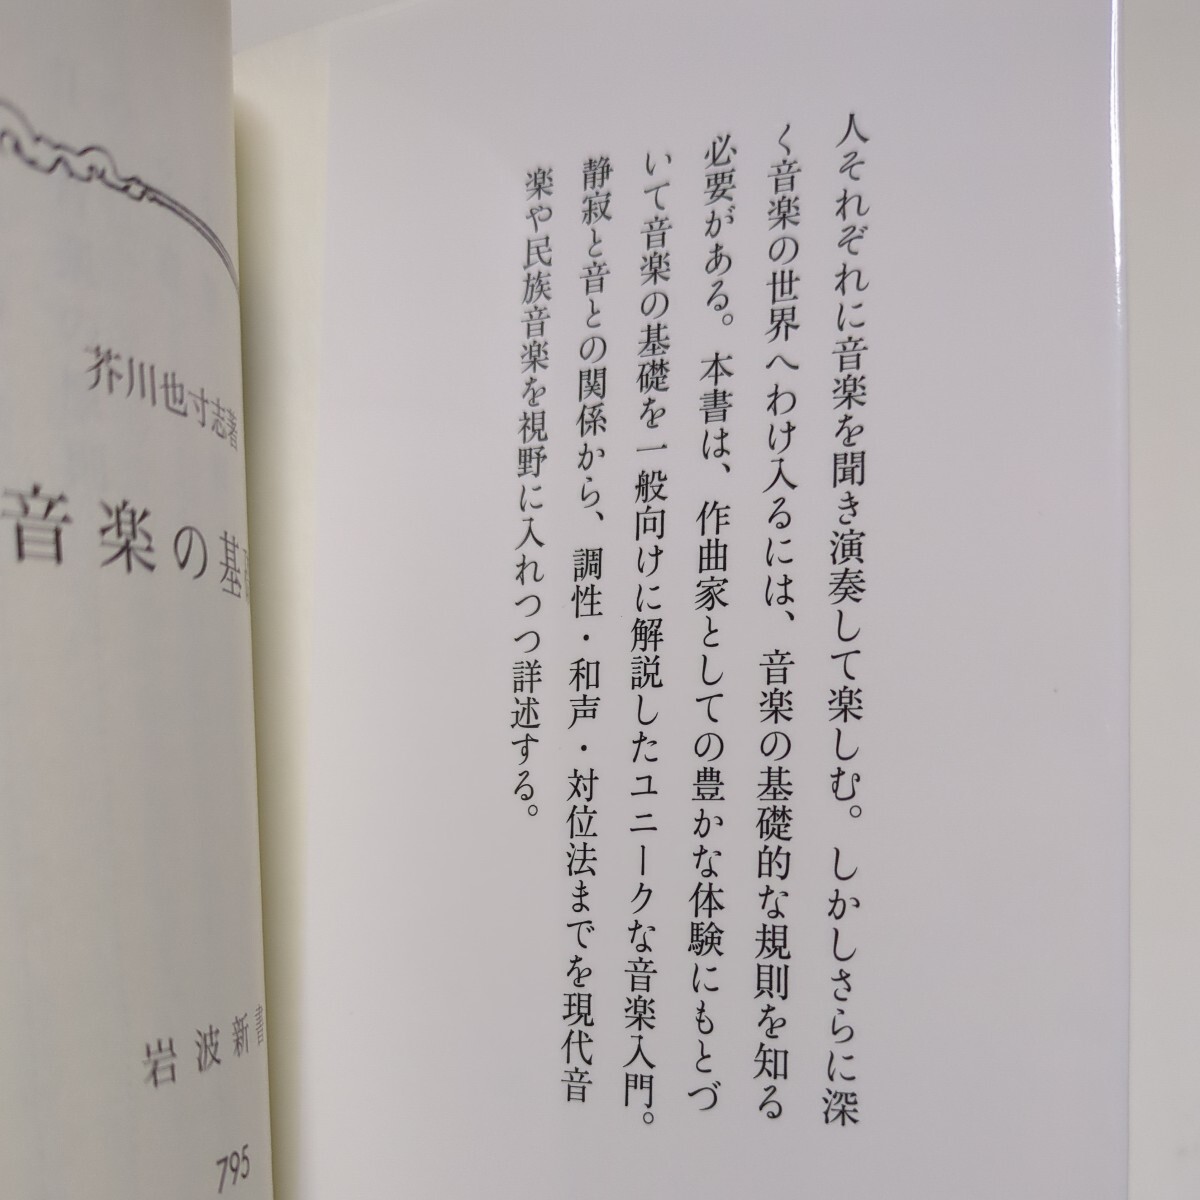 人それぞれに音楽を聞き演奏して楽しむ。しかしさらに深
く音楽の世界へわけ入るには、音楽の基礎的な規則を知る
必要がある。本書は、作曲家としての豊かな体験にもとづ
いて音楽の基礎を一般向けに解説したユニークな音楽入門。
静寂と音との関係から、調性・和声・対位法までを現代音
楽や民族音楽を視野に入れつつ詳述する。
芥川也寸志著
音楽の基礎
岩波新書
795